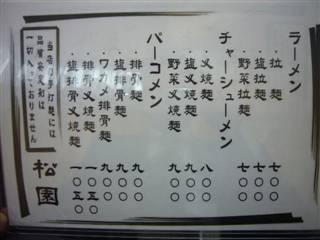 ラーメン
・拉麺 七〇〇
・塩拉麺 七〇〇
・野菜拉麺 七〇〇
チャーシューメン
・叉焼麺 八〇〇
・塩叉焼麺 九〇〇
・野菜叉焼麺 九〇〇
パーコメン
・排骨麺 九〇〇
・塩排骨麺 九〇〇
・ワカメ排骨麺 九〇〇
・排骨叉焼麺 一〇五〇
・塩排骨叉焼麺 一〇五〇
当店の手打麺には
一切入っておりません
松園